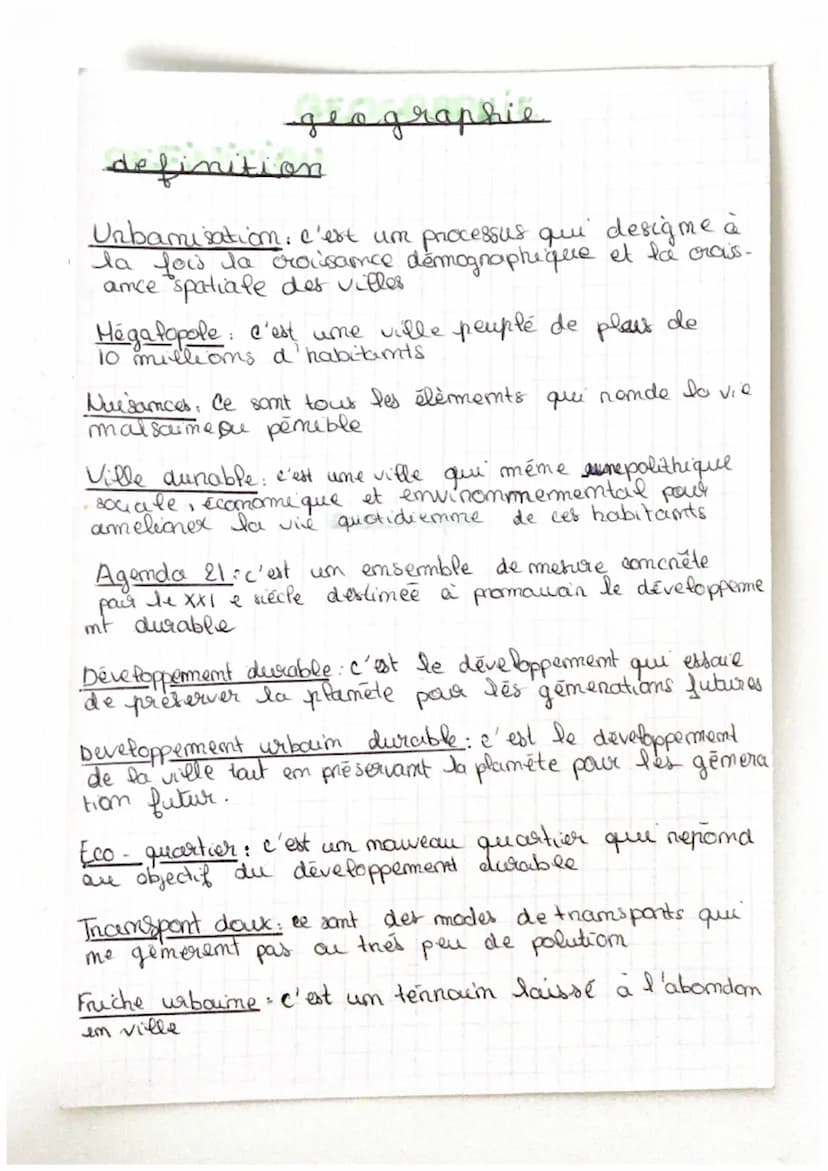 geographie
definition
Urbanisation : c'est un processus qui designe à
la fois la croissance démographique et la crois-
ance spatiale des villes
Mégalopole : c'est une ville peuplé de plus de
10 millions d'habitants
Nuisances : Ce sont tous les élèments qui rende la vie
malsaine ou pénible
Ville durable : c'est une ville qui méne une polithique
sociale, économique et environnermemental pour
ameliorer la vie quotidienne de ces habitants
Agenda 21 : c'est un ensemble de mesure concrète
pour le XXI e siécle destineé à promouvoir le développeme
nt durable
Développement durable : c'est le développement qui essaie
de préserver la planéte pour les génerations futures
Developpement urbain durable : c'est le developpement
de la ville tout en préservant la planéte pour les génera
tion futur.
Eco-quartier : c'est un nouveau quartier qui repond
au objectif du développement durable
Transport doux : ce sont des modes de transports qui
ne génerent pas ou trés peu de polution
Friche urbaine : c'est un terrain laissé à l'abondon
en ville